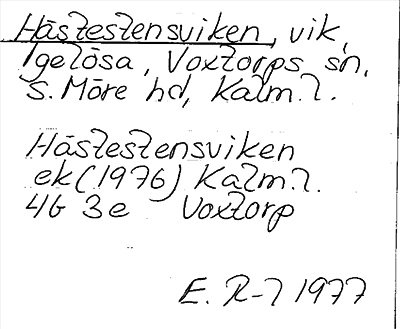 Hästestensviken, vik,
Igelösa, Voxtorps sn,
S. Möre hd, Kalm. l.
Hästestensviken
ek (1976) Kalm. l.
4G 3e Voxtorp
E. R-l 1977